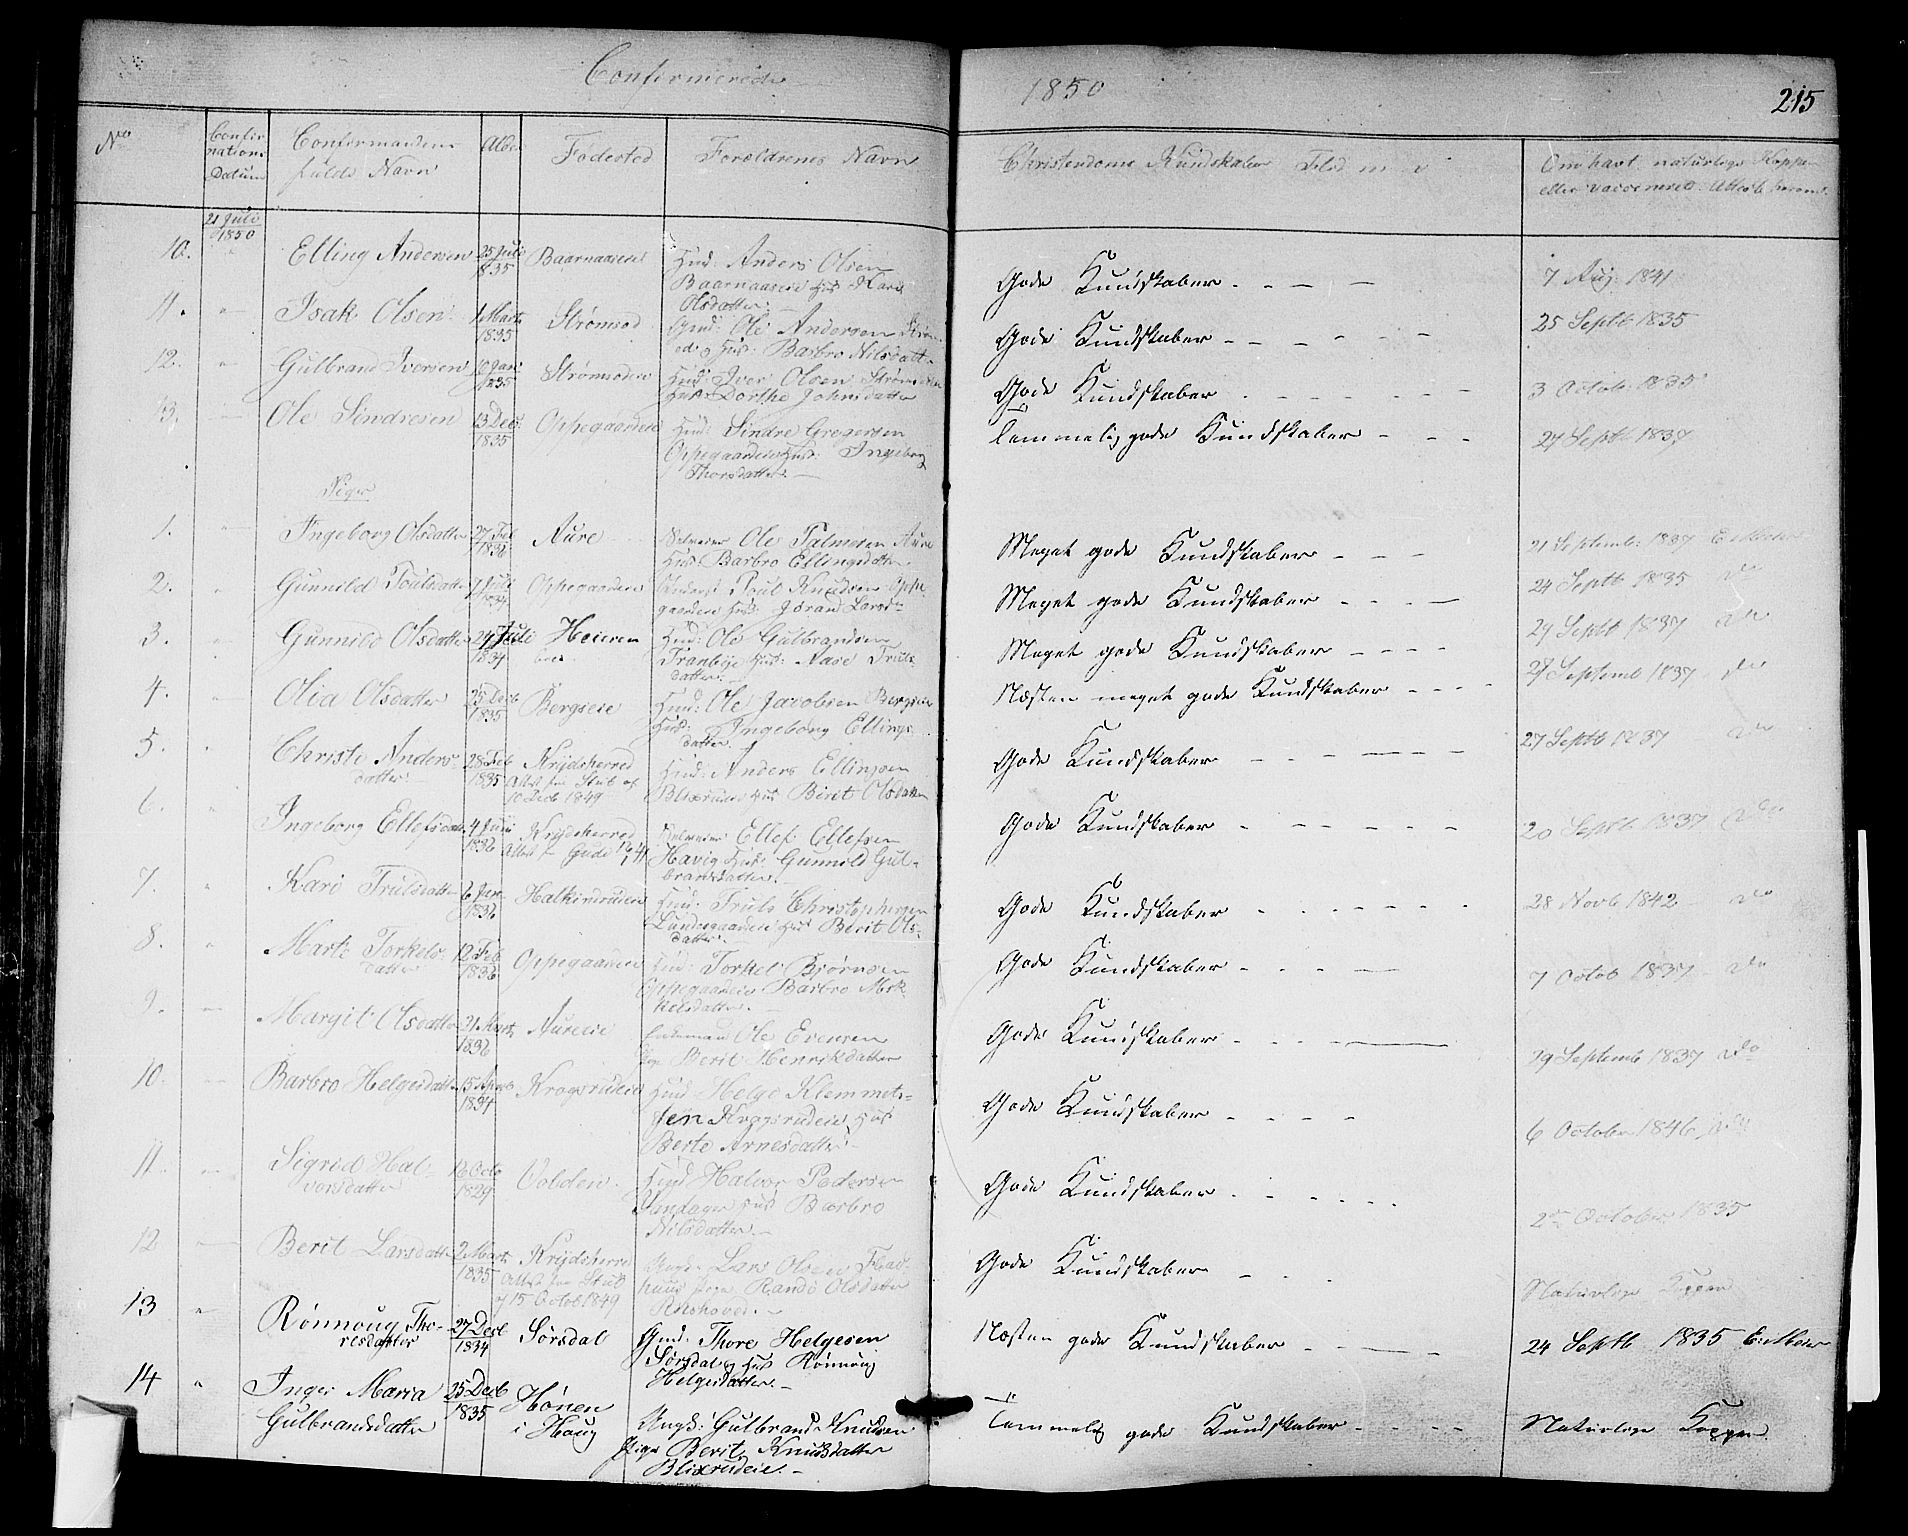 Confirmerede
1850
215
No
Confir
nations
Datum
Confirmandens
fulde Navn
Alder
Fødested
Forældrenes Navn
Christendoms Kundskaber
Om havt naturlige Kopper
eller vaccineret
21 Juli
1850
10. Elling Andersen 25 Juli 1835 Baarnaaseie Hmd: Anders Olsen
Baarnaaseie Hus Kari
Olsdatter.
Gode Kundskaber
7 Aug 1841
11. Isak Olsen 1 Marts 1835 Strømsod Gmd: Ole Andersen Strøm
od, Hus: Barbro Nilsdatter
Gode Kundskaber
25 Septb 1835
12. Gulbrand Iversen 10 Jan 1835 Strømsodeie Hmd: Iver Olsen Strømsodeie
Hus Dorthe Johnsdatter
Gode Kundskaber
3 Octob: 1835
13. Ole Sindresen 13 Dec: 1835 Oppegaardeie Hmd: Sindre Gregersen
Oppegaardeie Hus: Ingeborg
Thorsdatter.
Temmelig gode Kundskaber
27 Septb 1837
Piger
1. Ingeborg Olsdatter 27 Feb Aure Selveier Ole Palmesen Aure
Hus Barbro Ellingsdatter
Meget gode Kundskaber
21 Septemb: 1837
2. Gunnild Poulsdatter 7 Juli 1834 Oppegaardeie Poul Knudsen Oppe
gaardeie Hus: Joran Larsd
Meget gode Kundskaber
24 Septb 1835 do
3. Gunnild Olsdatter 24 Juli 1834 Heieren
bred. Hmd: Ole Gulbrandsen
Tranbye Hus: Aase Truls
datter.
Meget gode Kundskaber
29 Septb 1837 do
4. Olia Olsdatter 25 Decb 1835 Bergseie Hmd: Ole Jacobsen Bergseie
Hus: Ingeborg Ellings
datter.
Næsten meget gode Kundskaber
27 Septemb 1837 do
5. Christi Anders
datter 28 Feb 1835 Krydsherred
Attest fra Stub af
10 Decb 1849 Hmd: Anders Ellingsen
Blixrudeie Hus Berit Olsdatter
Gode Kundskaber
27 Septb 1837 do
6. Ingeborg Ellefsdatter 4 Juni 1836 Krydsherred
Selveier Ellef Ellefsen
Havig Hus: Gunnild Gul-
brandsdatter.
Gode Kundskaber
20 Septb 1837 do
7. Kari Trulsdatter 6 Jan 1836 Halkinrudeie Hmd: Truls Christophersen
Lundesgaardeie Hus Berit Ols-
datter.
Gode Kundskaber
28 Novb 1842 do
8. Marte Torkels
datter 12 Feb 1836 Oppegaardeie Hmd: Torkel Bjørnsen
Oppegaardeie Barbro Mik-
kelsdatter.
Gode Kundskaber
7 Octob 1837 do
9. Margit Olsdatter 21 Marts 1836 Aureeie Enkemand Ole Evensen
Pige Berit Henriksdatter
Gode Kundskaber
29 Septemb 1837 do
10. Barbro Helgesdatter 15 Aprb 1834 Krogsrudeie Hmd Helge Klemmet-
sen Krogsrudeie Hus
Berte Arnesdatter
Gode Kundskaber
6 October 1846 do
11. Sigrid Hal-
vorsdatter 16 Octb 1829 Volden Hmd Halvor Pedersen
Sandager Hus Barbro
Nilsdatter.
Gode Kundskaber
2den October 1835
12 Berit Larsdatter 2 Marts 1835 Krydsherred
Attest fra Stub
af 15 Octob 1849 Ungk: Lars Olsen
Pige Randi Olsdatter
Gode Kundskaber
Naturlige Kopper
13 Rønnoug Tho-
resdatter 27 Decb 1834 Sørsdal Gmd: Thore Helgesen
Sørsdal og Hus Rønnoug
Helgesdatter.
Næsten gode Kundskaber
24 Septb 1835
14 Inger Maria
Gulbrandsdatter 25 Decb 1835 Hønen
i Haug Ungk: Gulbrand Knudsen
Pige Berit Knudsdatter
Blixrudeie.
Temmelig gode Kundskaber
Naturlige Kopper.